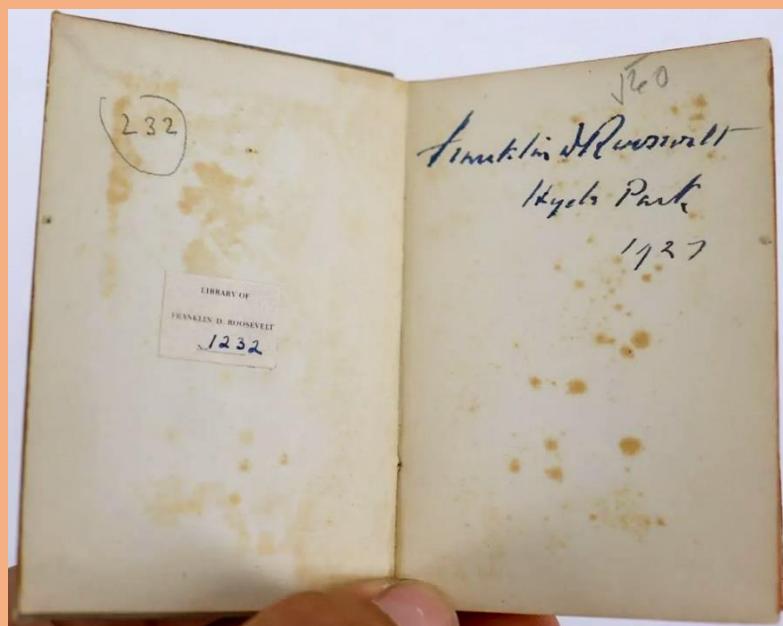 232
LIBRARY OF
FRANKLIN D. ROOSEVELT
1232
Franklin D Roosevelt
Hyde Park
1927